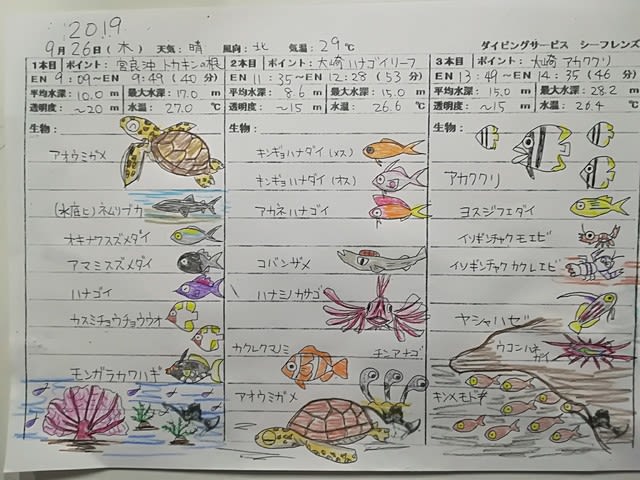 2019
9月26日(木) 天気:晴 風向:北 気温:29℃ ダイビングサービス シーフレンズ
1本目 ポイント: 宮良沖 トカキンの根
EN 9:09~EN 9:49 (40分)
平均水深: 10.0 m 最大水深: 17.0 m
透明度: ~20 m 水温: 27.0 ℃
生物:
アオウミガメ
(水底ヒ)ネムリブカ
オキナワスズメダイ
アマミスズメダイ
ハナゴイ
カスミチョウチョウウオ
モンガラカワハギ
2本目 ポイント: 大崎 ハナゴイリーフ
EN 11:35~EN 12:28 (53分)
平均水深: 8.6 m 最大水深: 15.0 m
透明度: ~15 m 水温: 26.6 ℃
生物:
キンギョハナダイ(メス)
キンギョハナダイ(オス)
アカネハナゴイ
コバンザメ
ハナミノカサゴ
カクレクマノミ チンアナゴ
アオウミガメ
3本目 ポイント: 大崎 アカククリ
EN 13:49~EN 14:35 (46分)
平均水深: 15.0 m 最大水深: 28.2 m
透明度: ~15 m 水温: 26.4 ℃
生物:
アカククリ
ヨスジフエダイ
イソギンチャクモエビ
イソギンチャクカクレエビ
ヤシャハゼ
ウコンハネ
ガイ
キンメモドキ